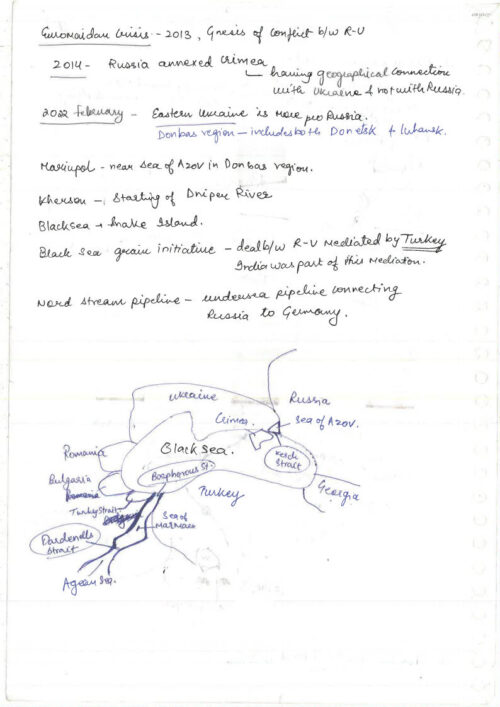 Euromaidan Crisis - 2013, Gnesis of Conflict b/w R-U
2014 - Russia annexed Crimea
having geographical connection
with Ukraene & not with Russia.
2022 february - Eastern Ukraine is more pro Russia.
Donbas region - includes both Donetsk + Luhansk.
Mariupol - near sea of Azov in Donbas region.
Kherson - Starting of Dniper River
Blacksea → Snake Island.
Black Sea grain initiative - deal b/w R-U mediated by Turkey
India was part of this Mediation.
Nord stream pipeline - undersea pipeline connecting
Russia to Germany.
Ukraine
Russia
Crimea
Sea of Azov.
Black sea.
Kerch
Strait
Romania
Bulgaria
Bosphorous St.
Turkey
Georgia
Turky Strait
Sea of
Marmara
Dardenells
Strait
Ageen Sea.